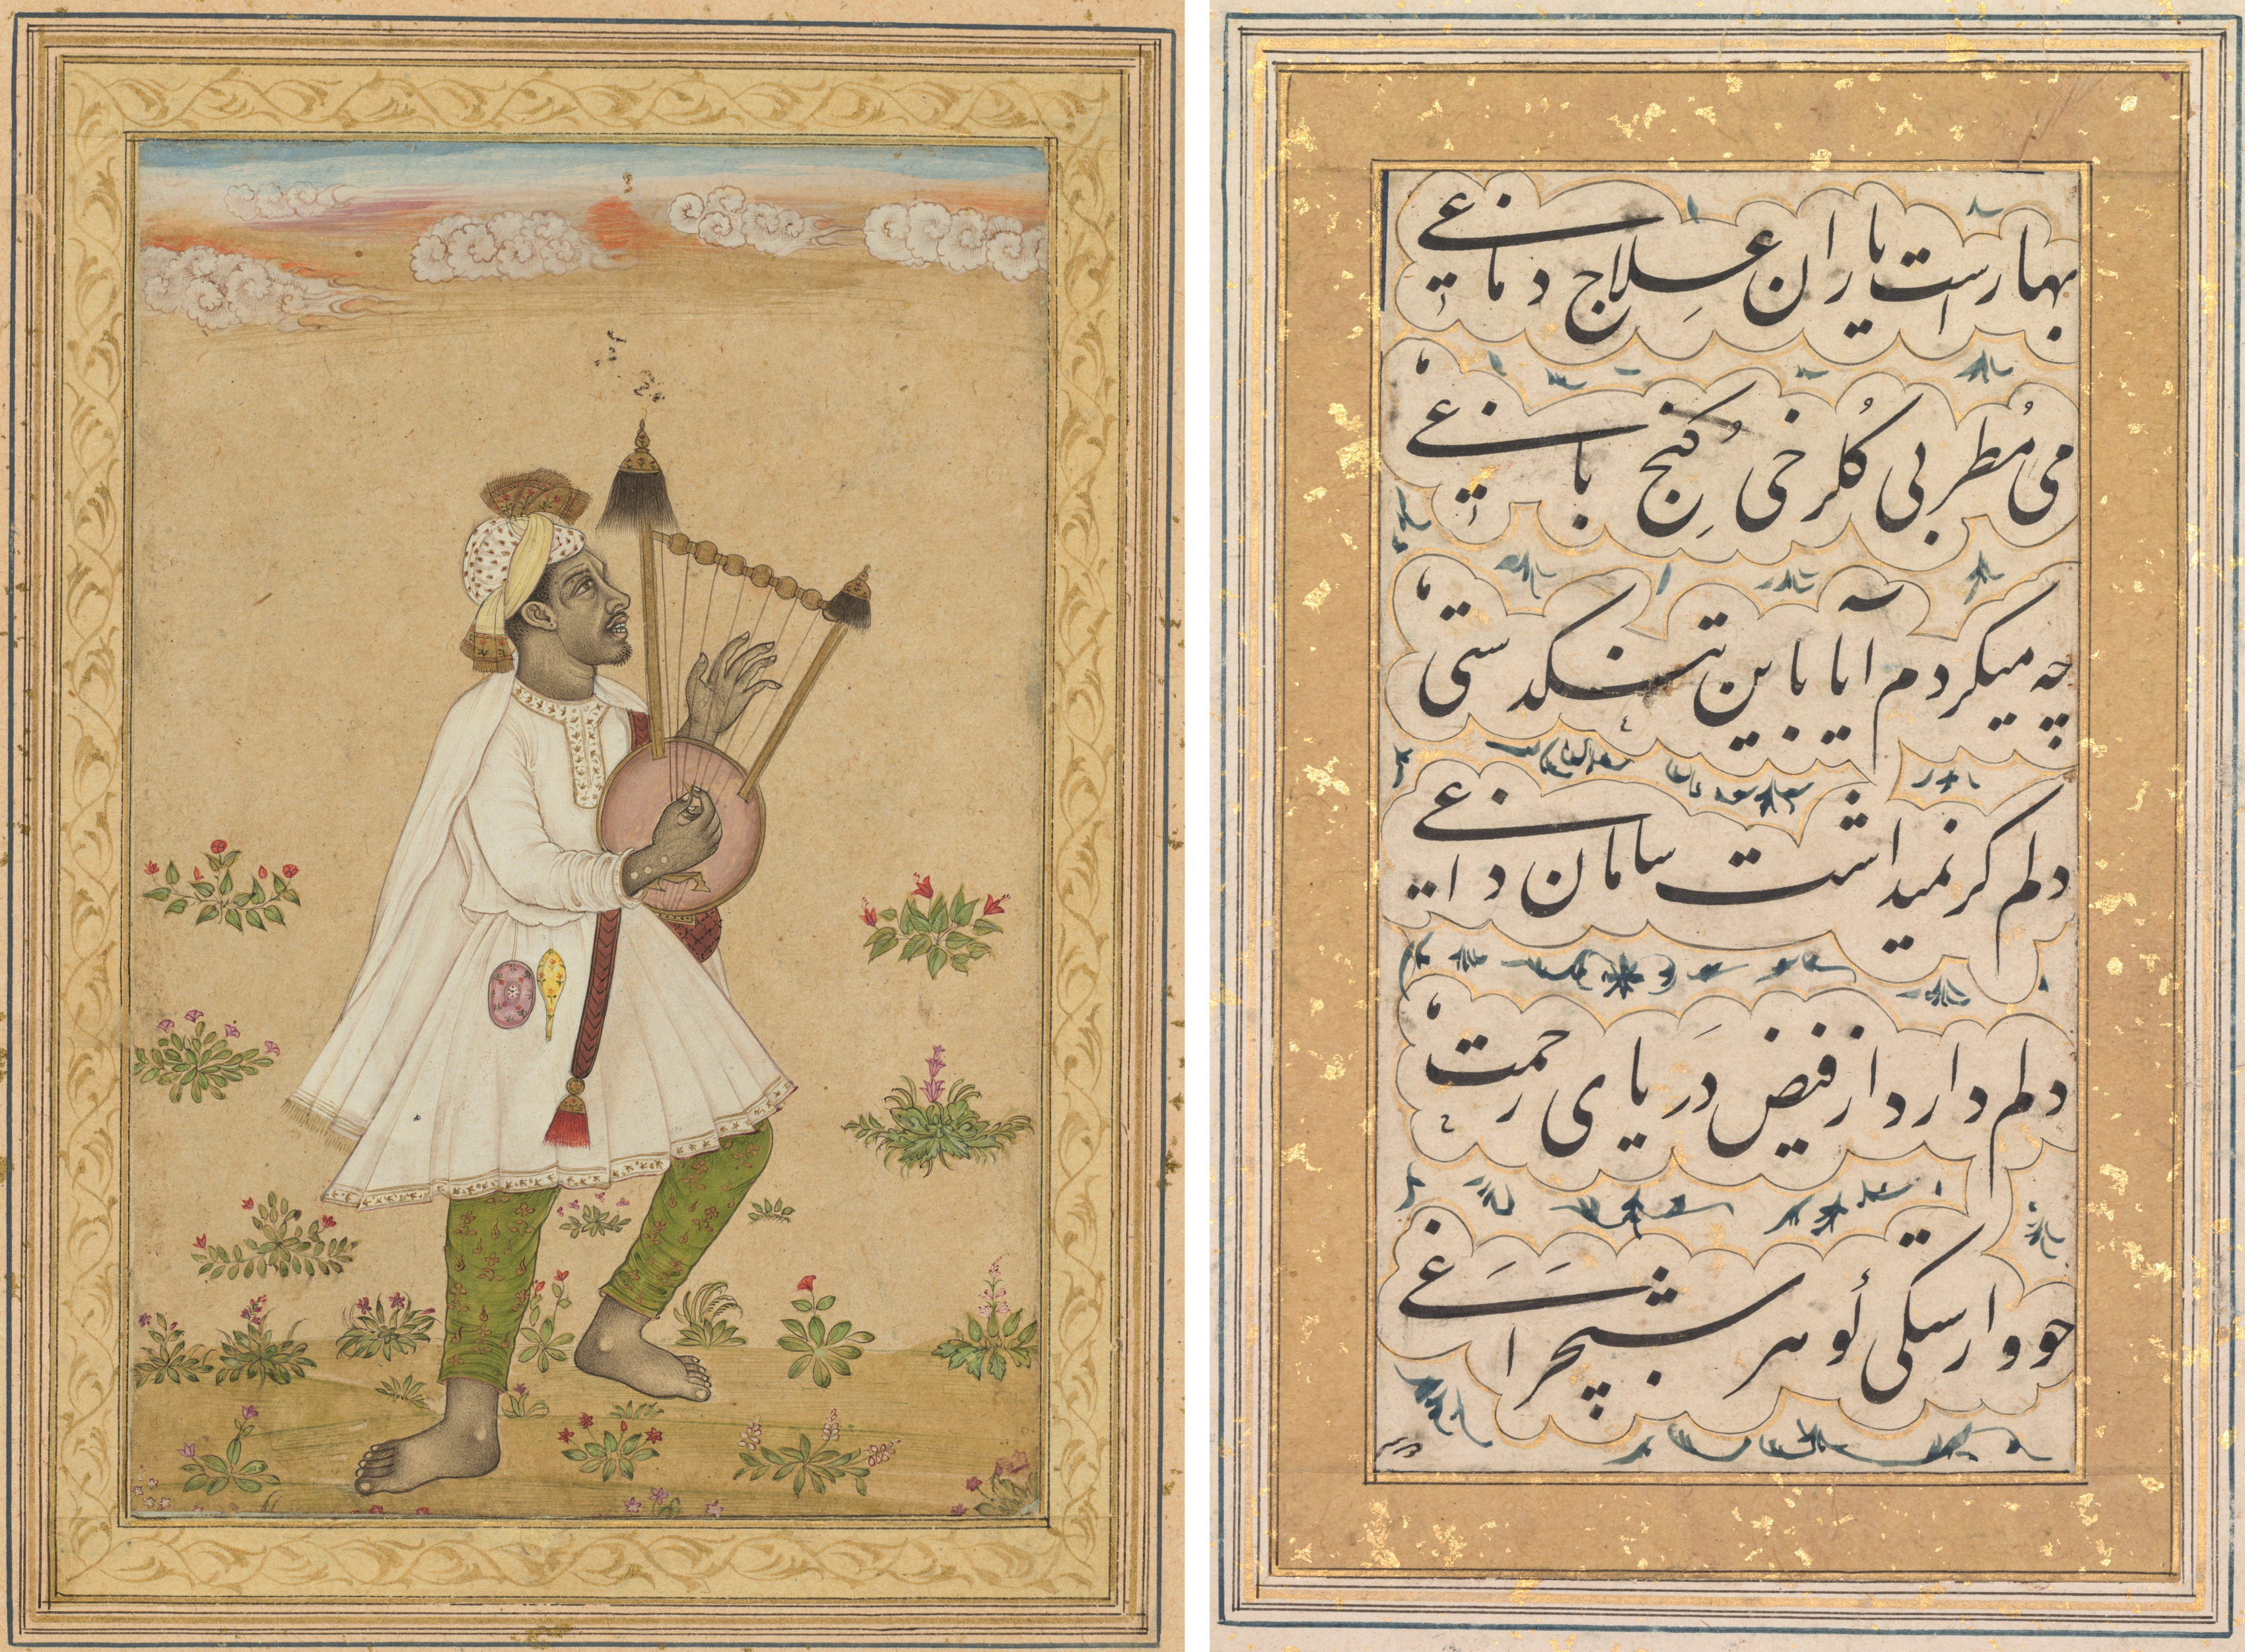 بهار است یاران عِلاج دماغی
می مُطربی کُلرخی کُنجِ باغی
چه میکردم آیا باین تنکدستی
دلم کر نمیداشت سامان داغی
دلم دارد از فیض دَریای رحمت
وارستکی شبچَراغَی